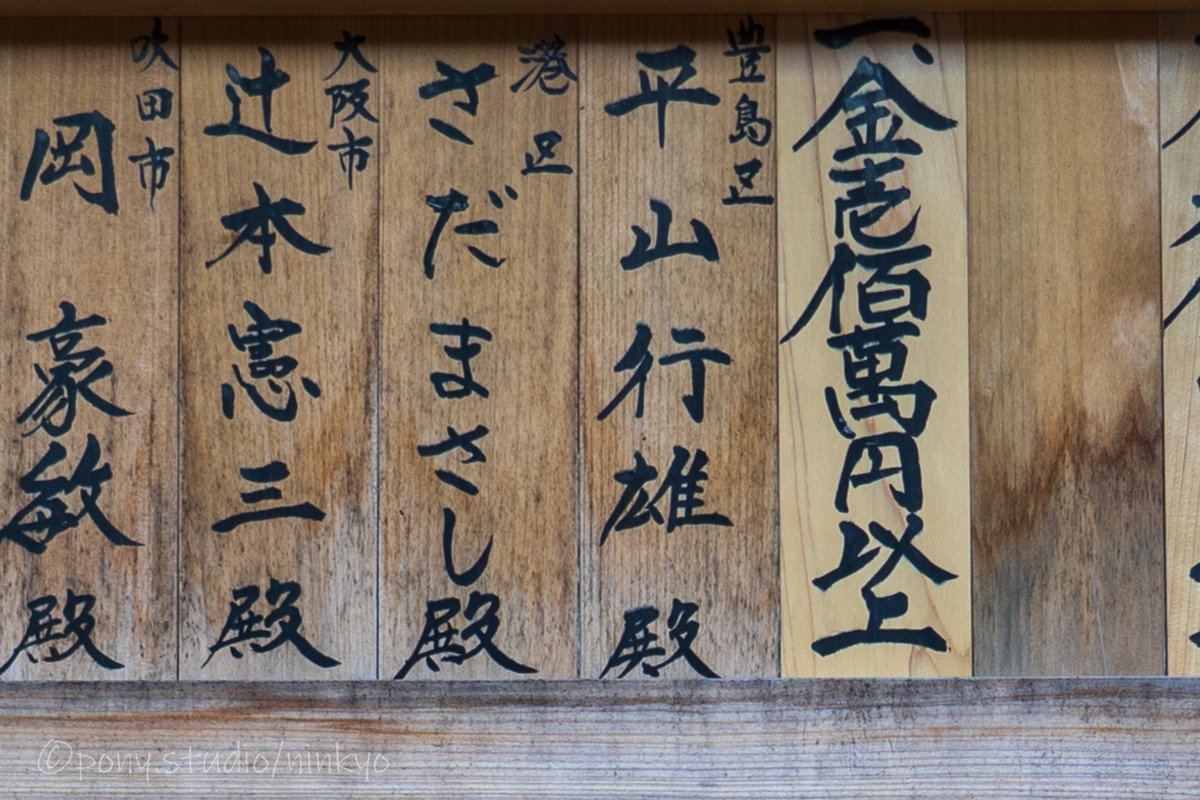 一、金壱佰萬円以上
豊島区
平山行雄殿
港区
さだまさし殿
大阪市
辻本憲三殿
吹田市
岡豪敏殿
©pony.studio/ninkyo